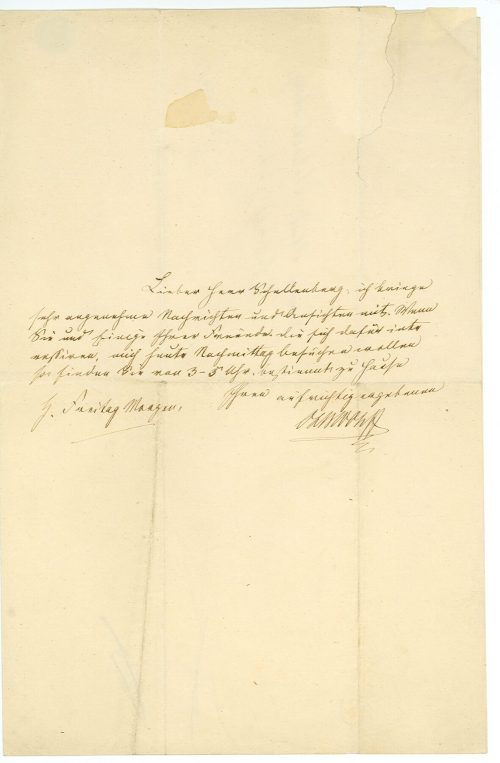 Lieber Herr Schellenberg, ich bringe
sehr angenehme Nachrichten und Ansichten mit. Wenn
Sie und Einige Ihrer Freunde, die sich dafür inte
ressiren, mich heute Nachmittag besuchen wollen
so finden Sie von 3-5 Uhr bestimmt zu Hause
Ihren aufrichtig ergebenen
H. Freitag Morgen.